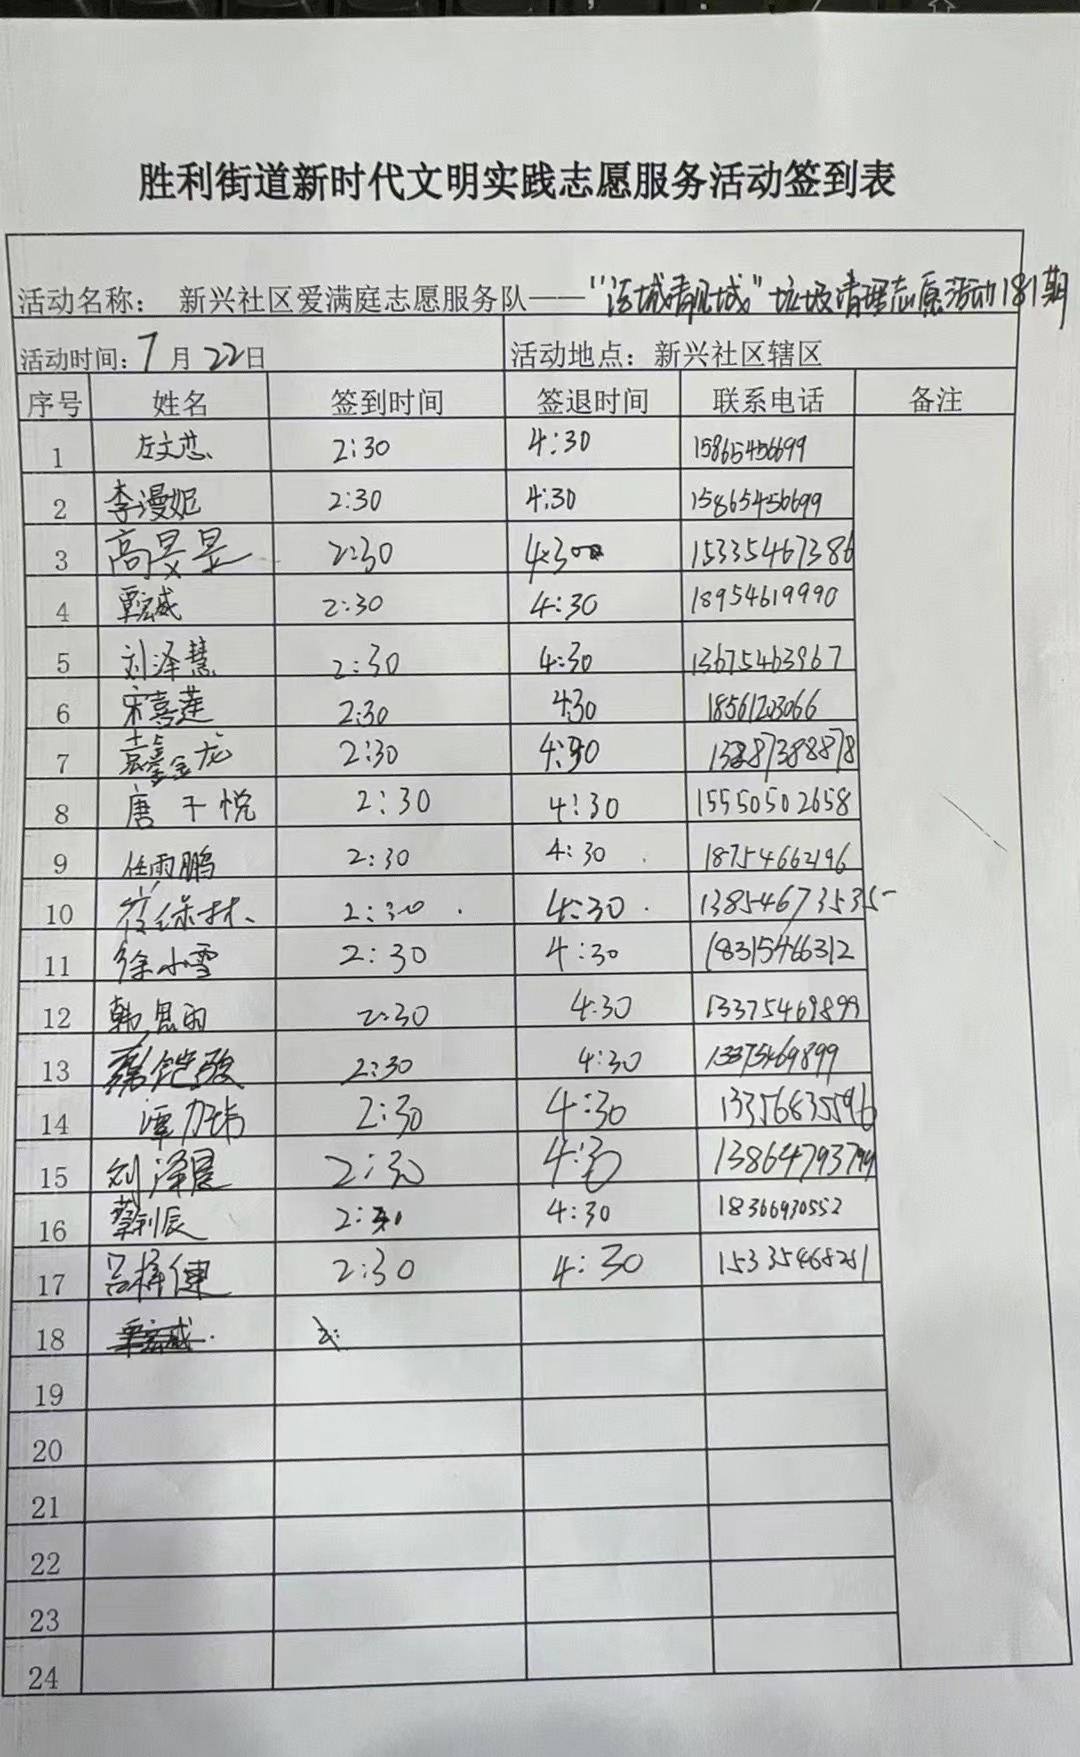 胜利街道新时代文明实践志愿服务活动签到表
活动名称： 新兴社区爱满庭志愿服务队——“ 垃圾清理志愿活动181期
活动时间：7月22日 活动地点：新兴社区辖区
序号 姓名 签到时间 签退时间 联系电话 备注
1 左文 2:30 4:30 15865456699
2 李漫妮 2:30 4:30 15865456699
3 高昱 2:30 4:30 15335467386
4 覃宏威 2:30 4:30 18954619990
5 刘泽慧 2:30 4:30 13675463967
6 宋喜莲 2:30 4:30 18561203066
7 袁鑫龙 2:30 4:30
8 唐千悦 2:30 4:30 15550502658
9 任雨鹏 2:30 4:30 18754662196
10 2:30 4:30 13854673535
11 徐小雪 2:30 4:30 18315466312
12 韩昆雨 2:30 4:30 13375469899
13 2:30 4:30 13375469899
14 谭力玮 2:30 4:30 13356835596
15 刘泽晨 2:30 4:30 13864793799
16 蔡利辰 2:30 4:30 18366930552
17 吕梓健 2:30 4:30 15335468251
18 2:
19
20
21
22
23
24